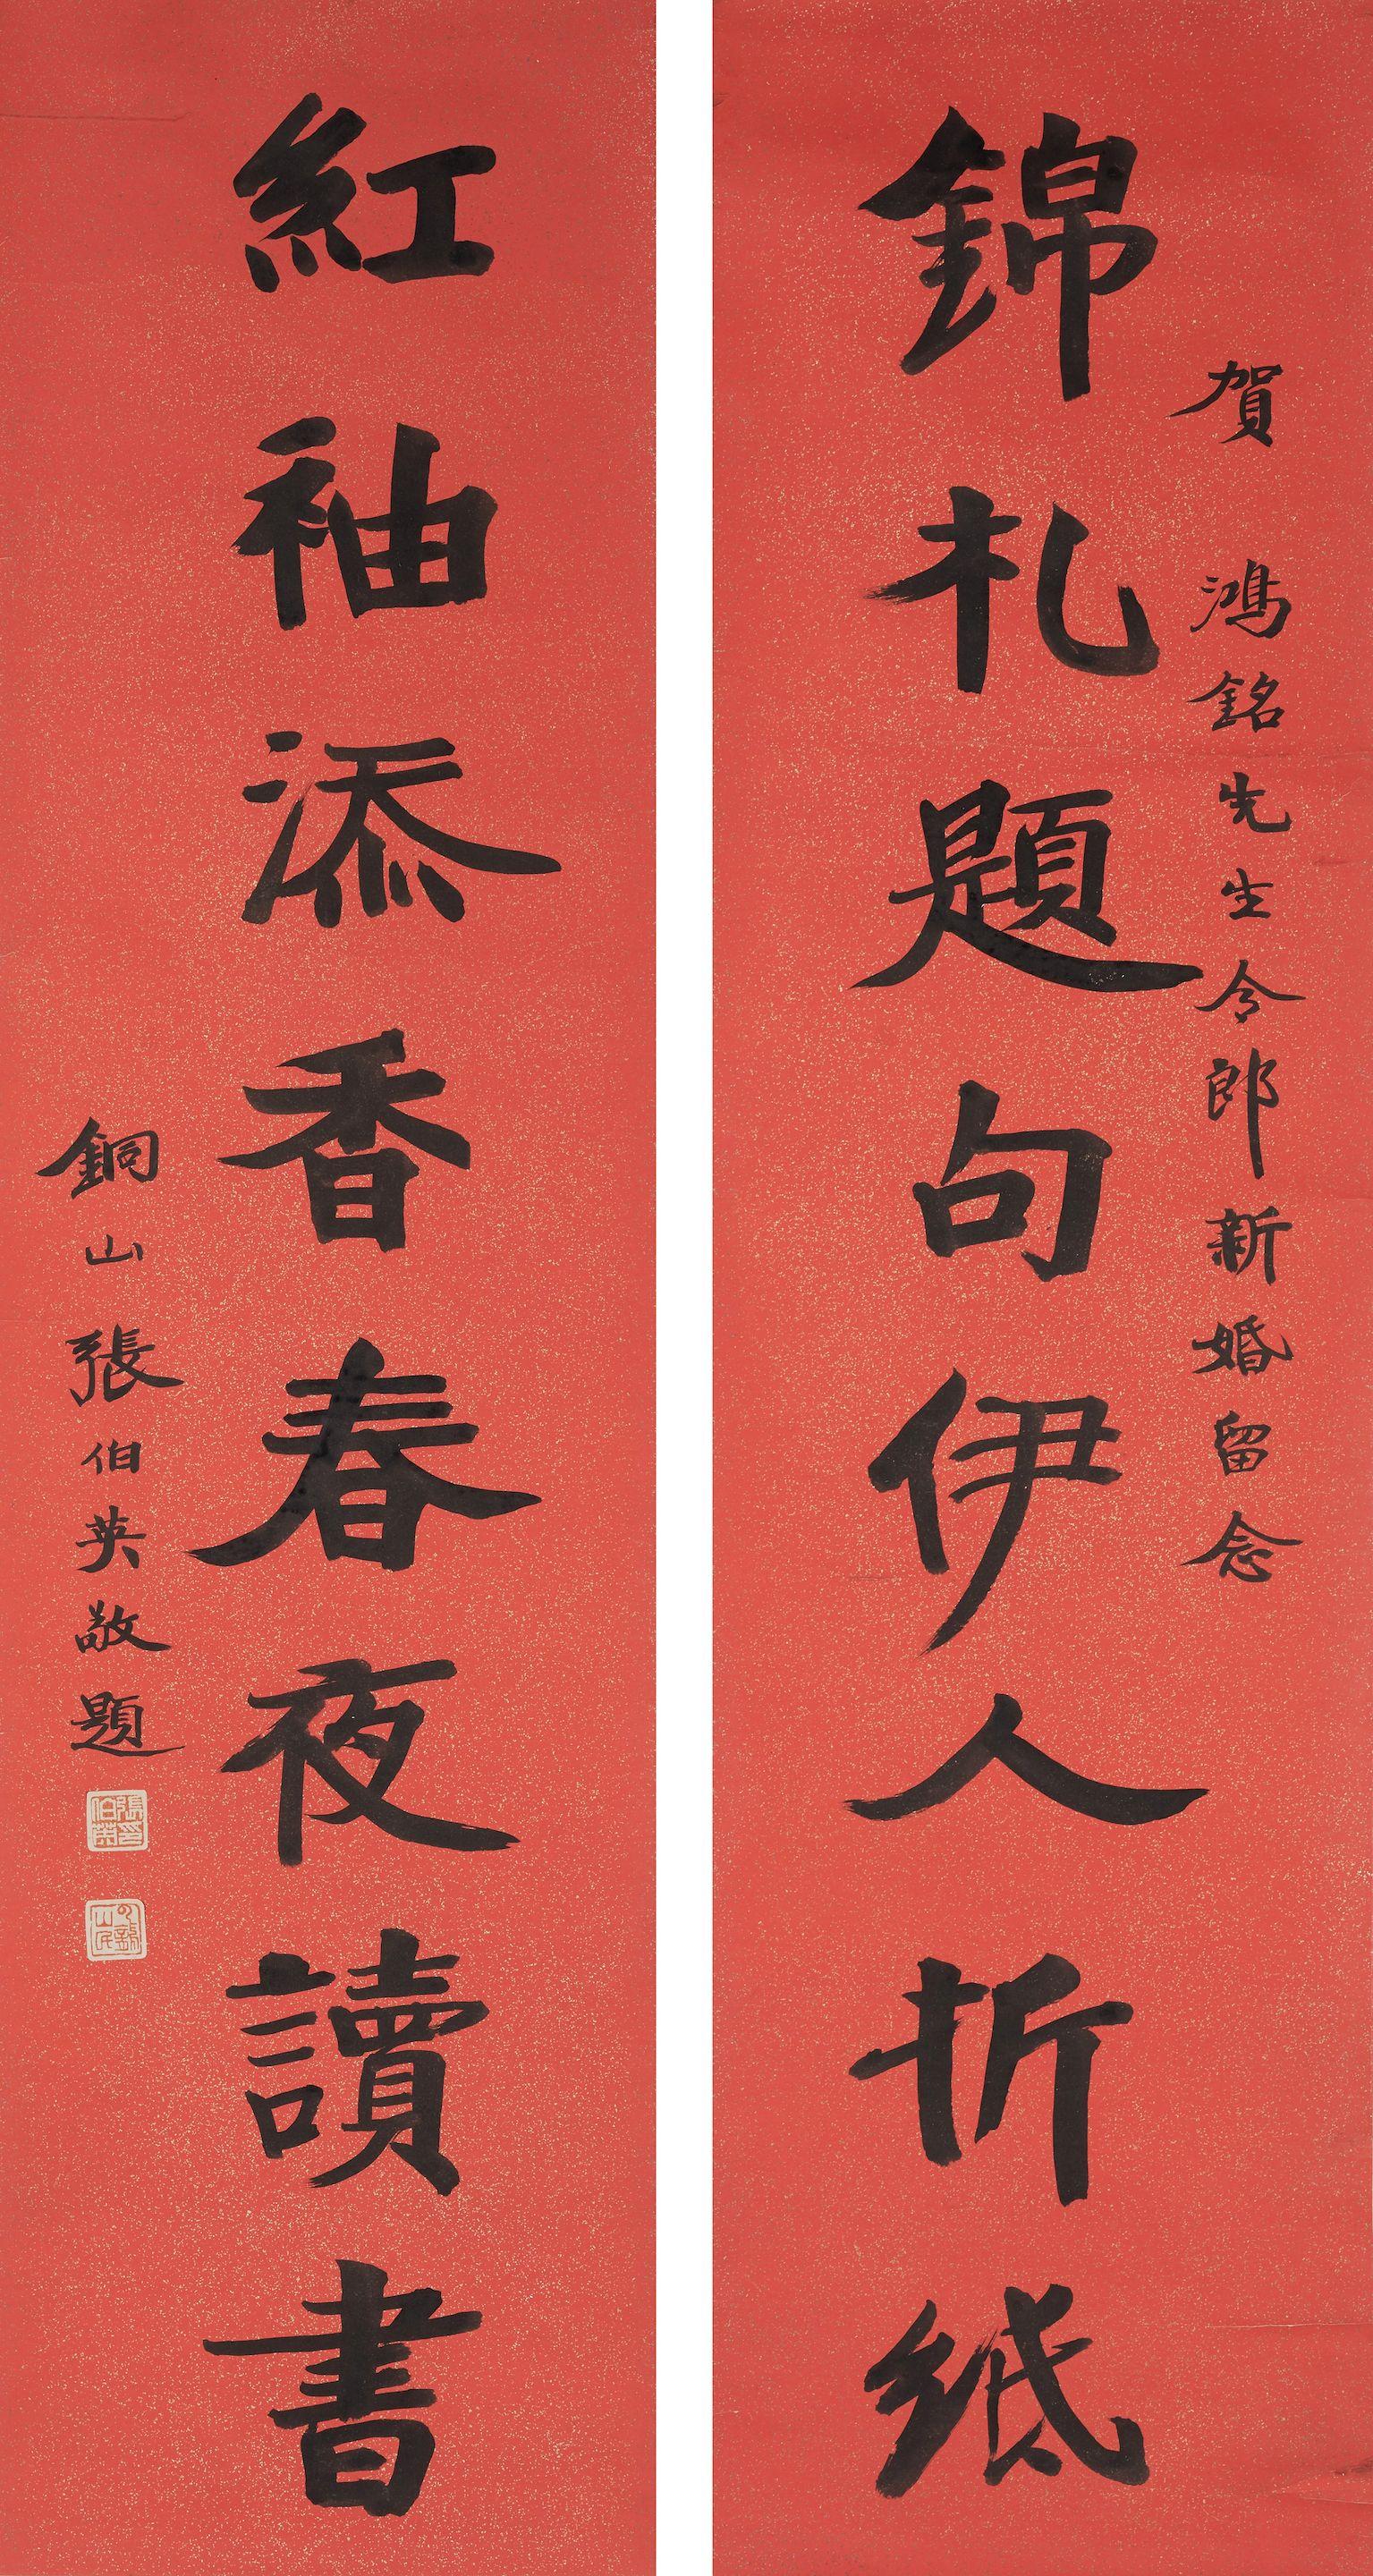 賀鴻銘先生令郎新婚留念
錦札題句伊人折紙
紅袖添香春夜讀書
銅山張伯英敬題
張伯英印